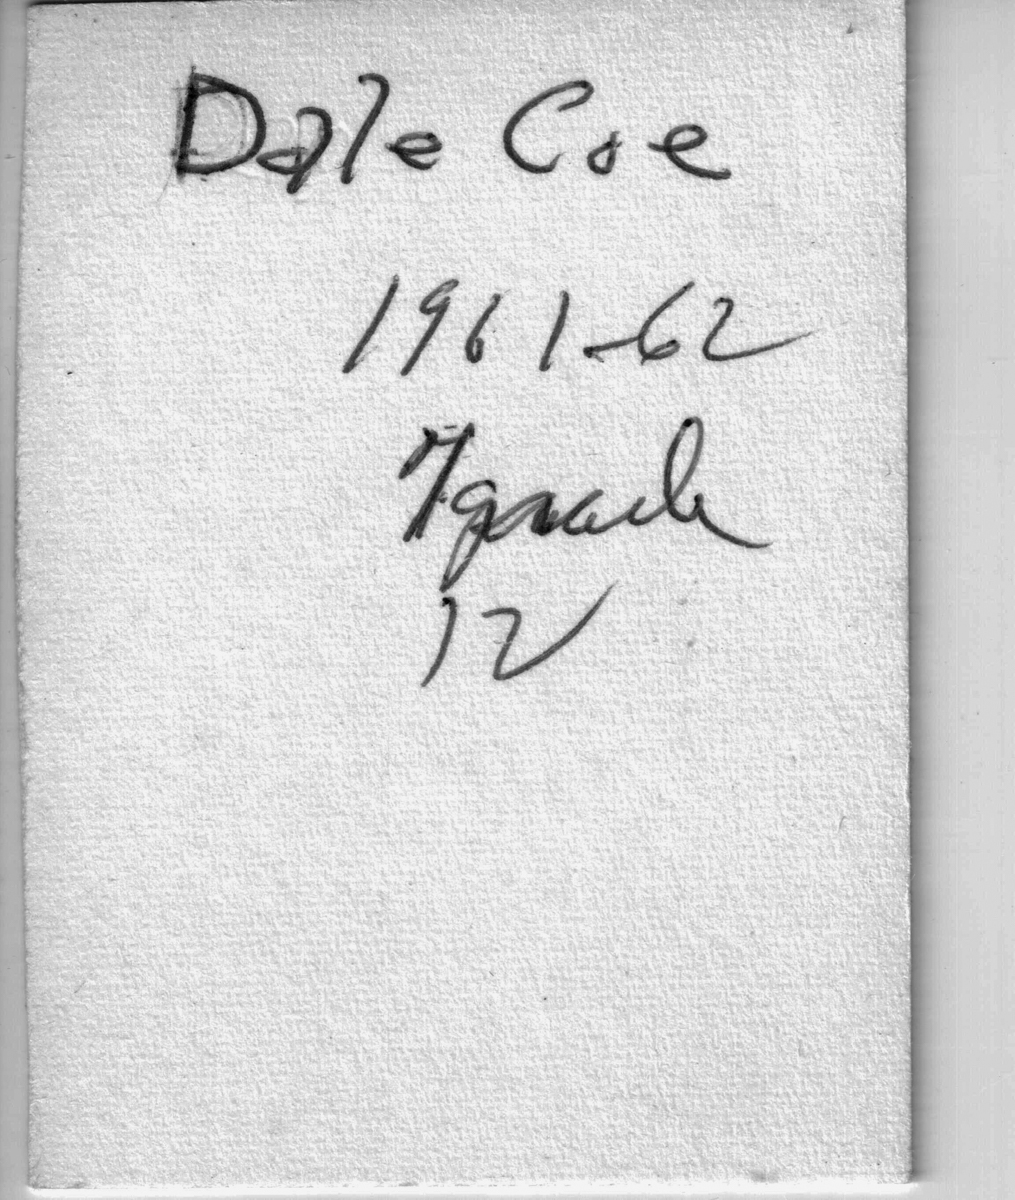 Dale Coe
1961-62
7 grade
12